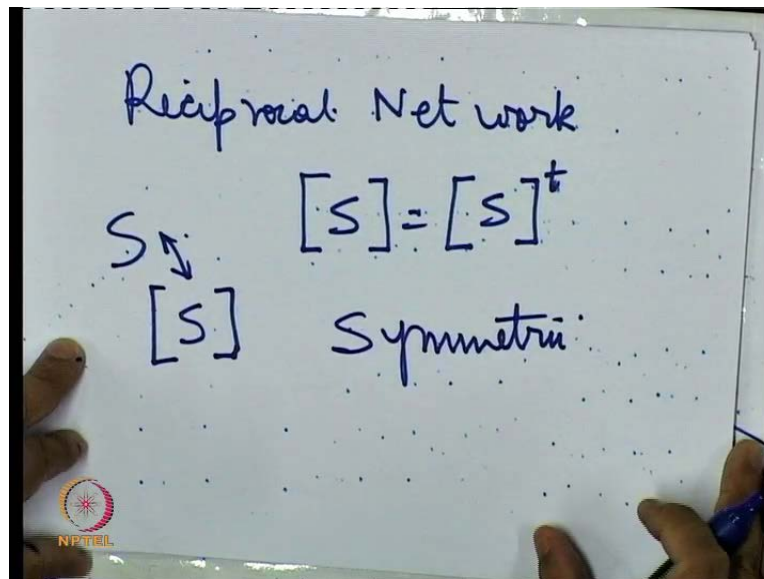 Reciprocal Network
[S] = [S]^t
S
[S] Symmetric
NPTEL